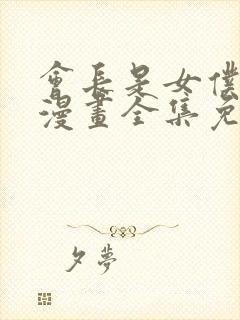 會長是女僕
漫畫全集免
夕夢